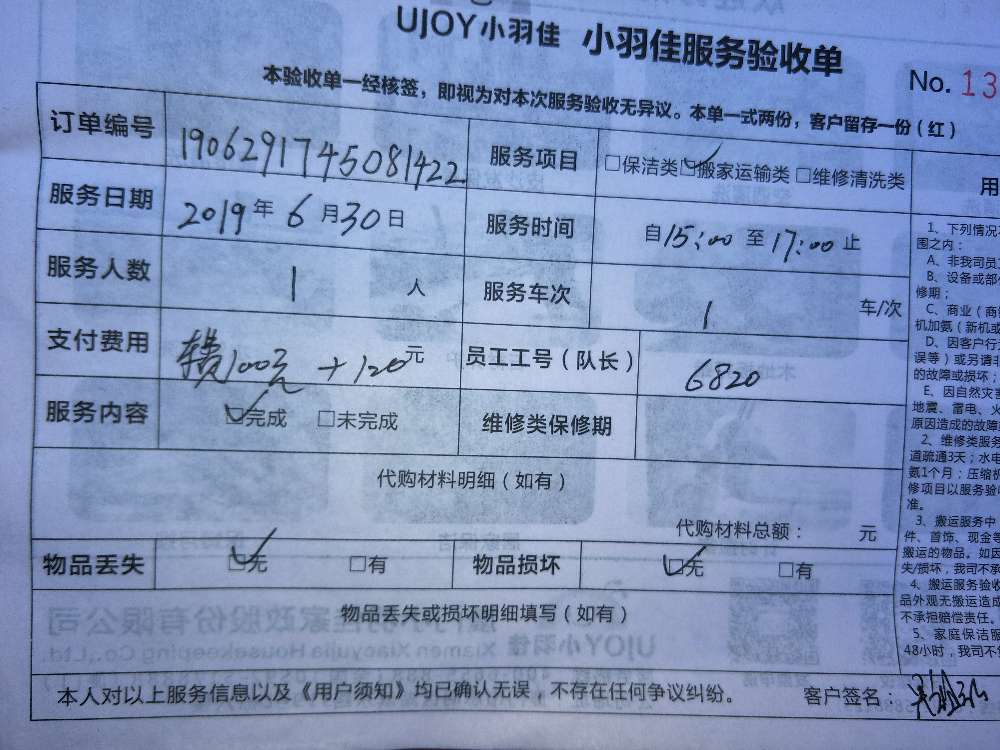 UJOY小羽佳 小羽佳服务验收单
No. 13
本验收单一经核签，即视为对本次服务验收无异议。本单一式两份，客户留存一份（红）
订单编号 1906291745081422 服务项目 □保洁类 ☑搬家运输类 □维修清洗类
服务日期 2019年6月30日 服务时间 自15:00至17:00止
服务人数 1 人 服务车次 1 车/次
支付费用 100元+120元 员工工号（队长） 6820
服务内容 ☑完成 □未完成 维修类保修期
代购材料明细（如有）
代购材料总额： 元
物品丢失 ☑无 □有 物品损坏 ☑无 □有
物品丢失或损坏明细填写（如有）
本人对以上服务信息以及《用户须知》均已确认无误，不存在任何争议纠纷。 客户签名：
用
1、下列情况
围之内：
A、非我司员
B、设备或部
修期；
C、商业（商
机加氨（新机或
D、因客户行
误等）或另请非
的故障或损坏；
E、因自然灾害
地震、雷电、火
原因造成的故障
2、维修类服务
道疏通3天；水电
氨1个月；压缩机
修项目以服务验收
准。
3、搬运服务中
件、首饰、现金等
搬运的物品。如因
失/损坏，我司不承
4、搬运服务验收
品外观无搬运造成
不承担赔偿责任。
5、家庭保洁服
48小时，我司不